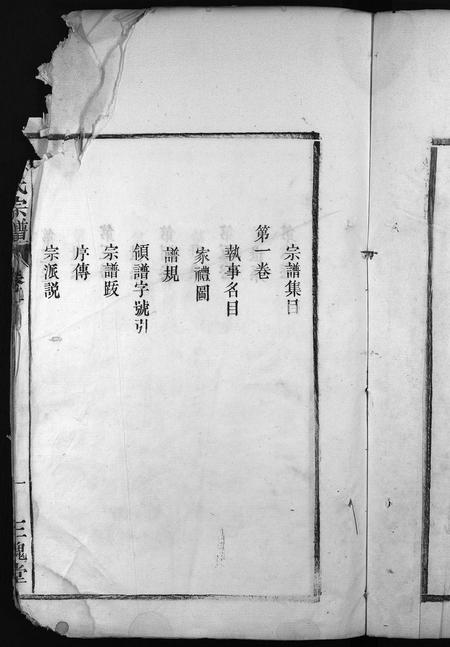 宗譜集目
第一卷
執事名目
家禮圖
譜規
領譜字號引
宗譜跋
序傳
宗派説
氏宗譜
卷
一
三槐堂